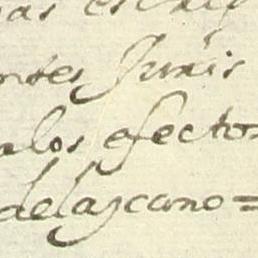 ntes Juris
alos efecto
delazcano =